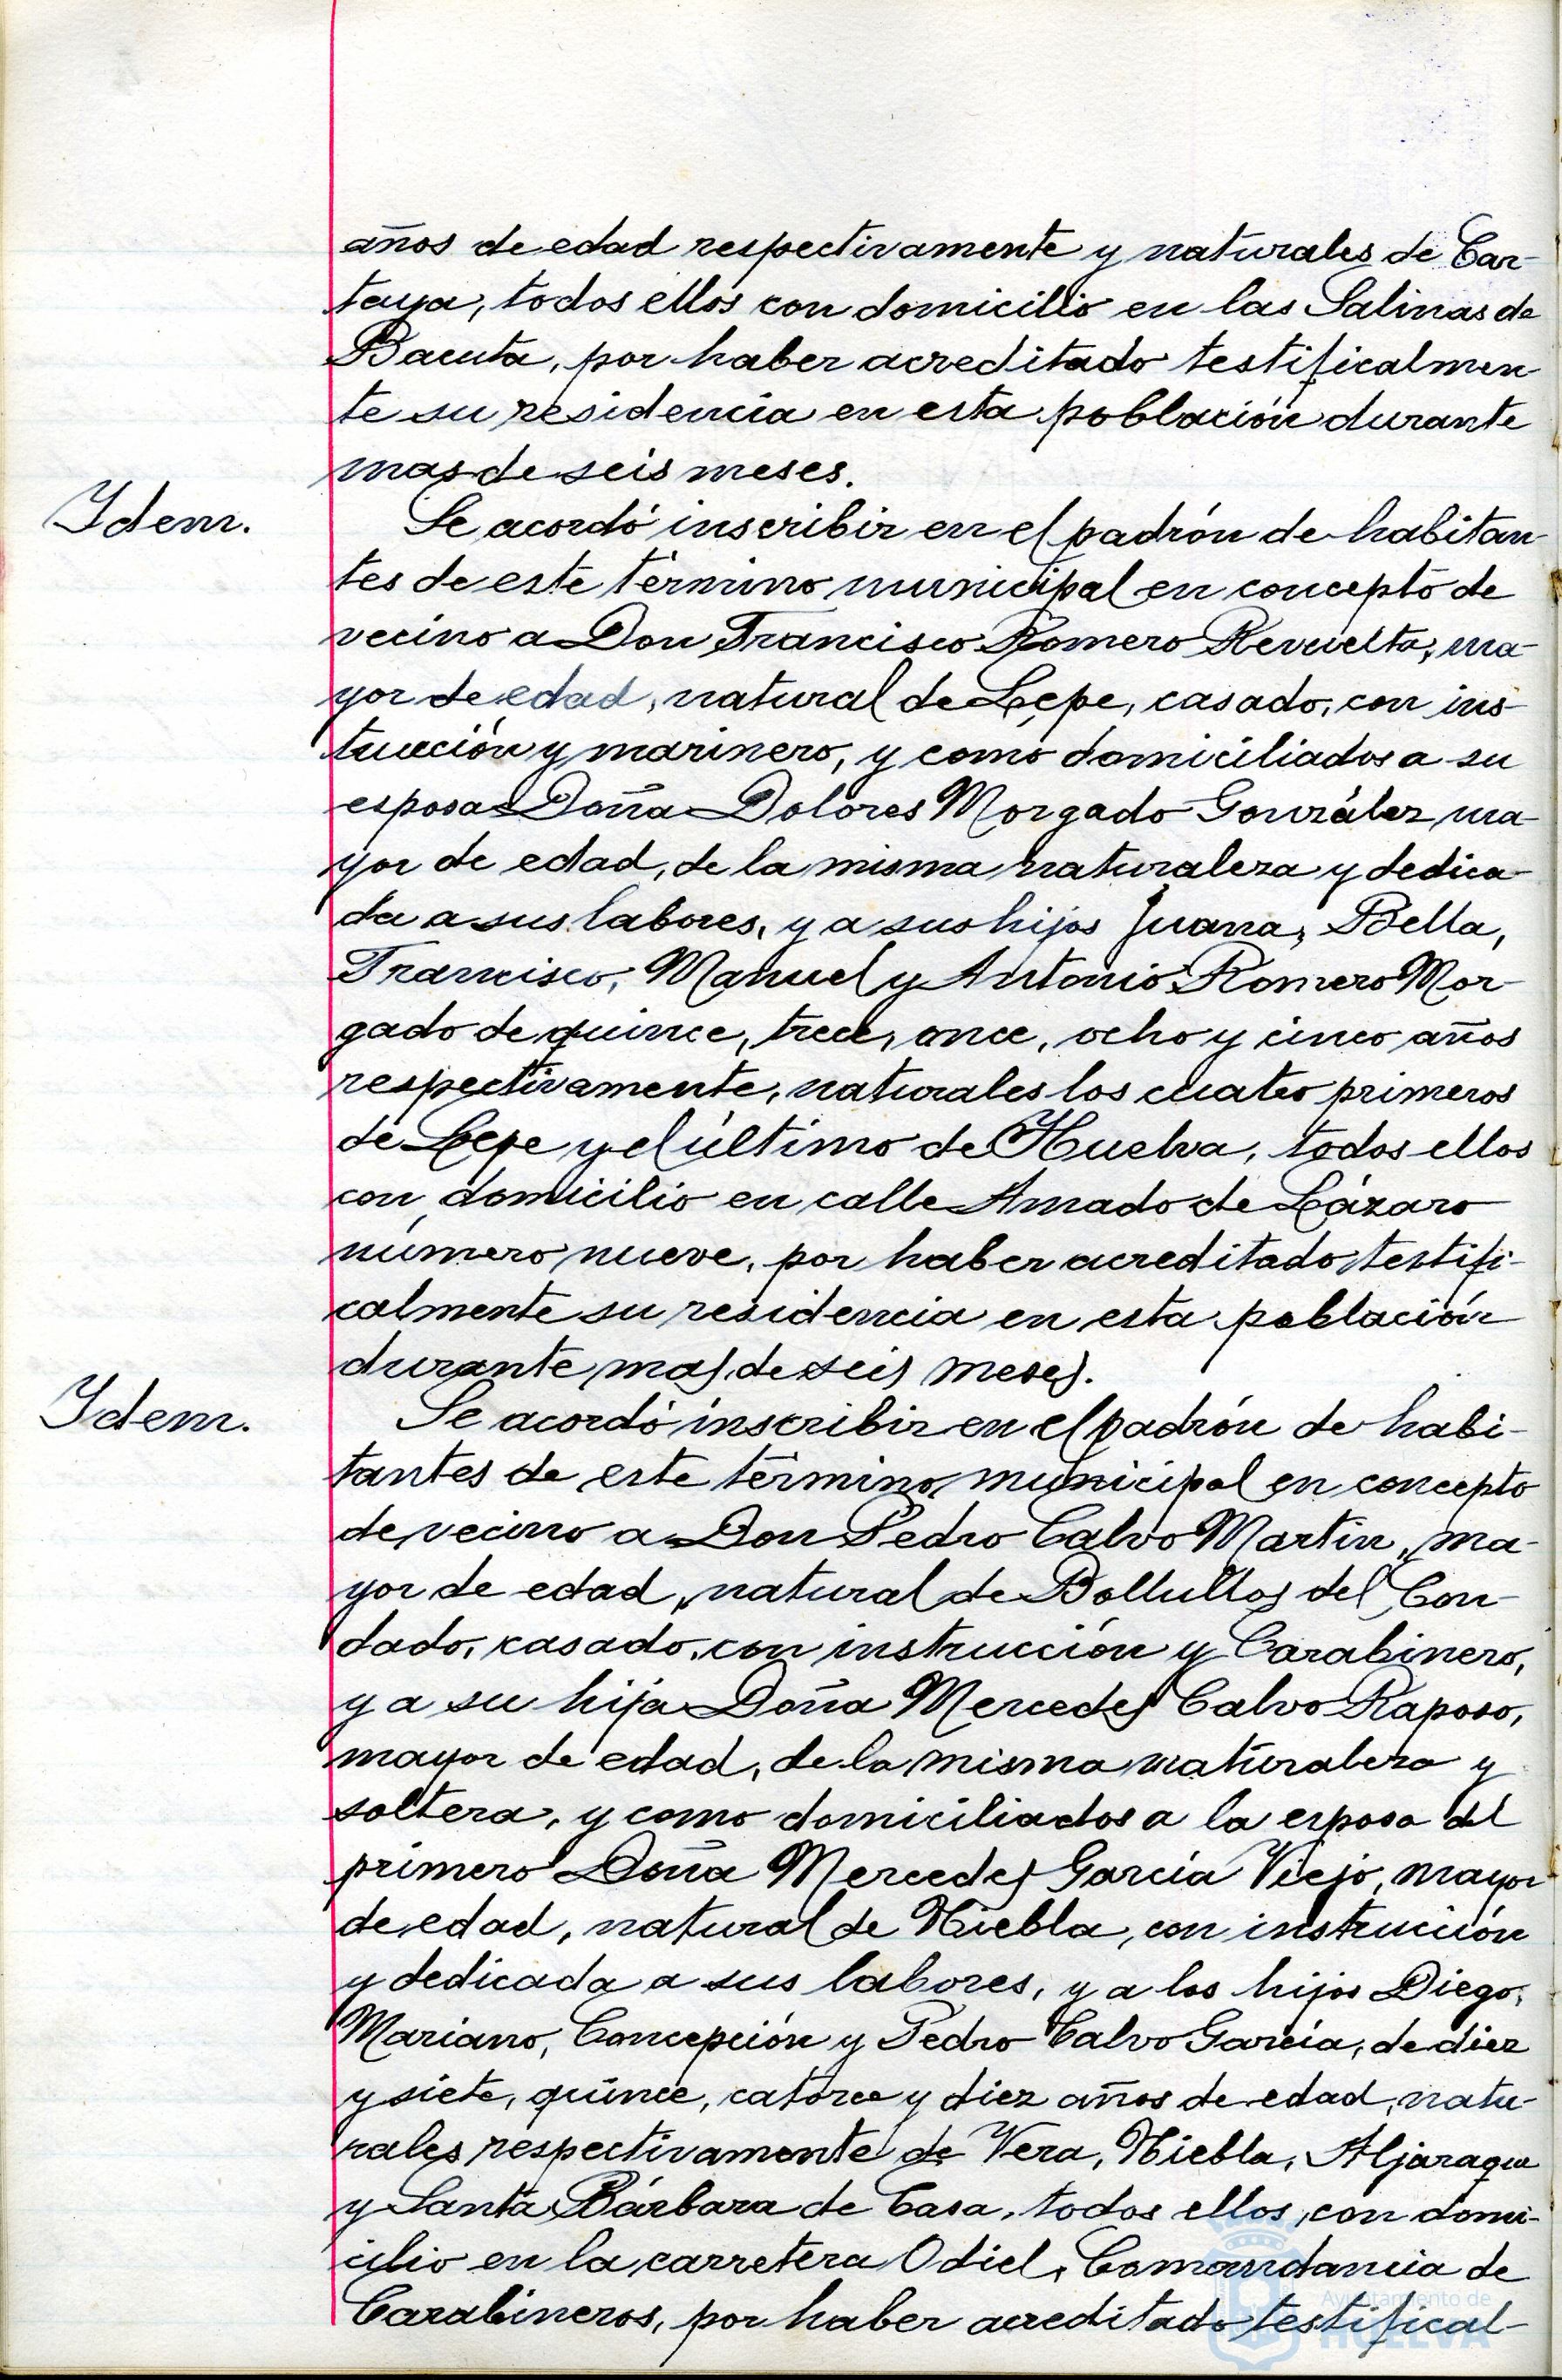 años de edad respectivamente y naturales de Car-
taya, todos ellos con domicilio en las Salinas de
Bacuta, por haber acreditado testificalmen-
te su residencia en esta población durante
mas de seis meses.
Idem.
Se acordó inscribir en el padrón de habitan-
tes de este término municipal en concepto de
vecino a Don Francisco Romero Revuelta, ma-
yor de edad, natural de Lepe, casado, con ins-
trucción y marinero, y como domiciliados a su
esposa Doña Dolores Morgado González, ma-
yor de edad, de la misma naturaleza y dedica-
da a sus labores, y a sus hijos Juana, Bella,
Francisco, Manuel y Antonio Romero Mor-
gado de quince, trece, once, ocho y cinco años
respectivamente, naturales los cuatro primeros
de Lepe y el último de Huelva, todos ellos
con domicilio en calle Amado de Lázaro
número nueve, por haber acreditado testifi-
calmente su residencia en esta población
durante mas de seis meses.
Idem.
Se acordó inscribir en el padrón de habi-
tantes de este término municipal en concepto
de vecino a Don Pedro Calvo Martin, ma-
yor de edad, natural de Bollullos del Con-
dado, casado, con instrucción y Carabinero,
y a su hija Doña Mercedes Calvo Raposo,
mayor de edad, de la misma naturaleza y
soltera, y como domiciliados a la esposa del
primero Doña Mercedes García Viejo, mayor
de edad, natural de Niebla, con instrucción
y dedicada a sus labores, y a los hijos Diego,
Mariano, Concepción y Pedro Calvo García, de diez
y siete, quince, catorce y diez años de edad, natu-
rales respectivamente de Vera, Niebla, Aljaraque
y Santa Bárbara de Casa, todos ellos, con domi-
cilio en la carretera Odiel, Comandancia de
Carabineros, por haber acreditado testifical-
Ayuntamiento de
HUELVA